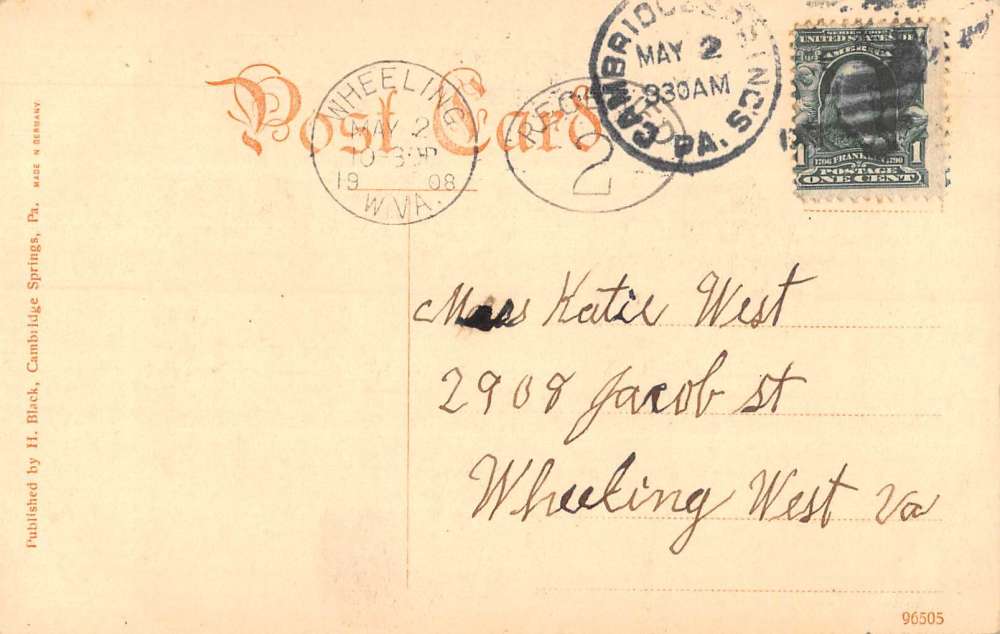 Post Card
WHEELING
MAY 2
1908
W.VA.
REC'D
2
CAMBRIDGE SPRINGS
MAY 2
830AM
PA.
SERIES 1902
UNITED STATES OF
AMERICA
1 1
1706 FRANKLIN 1790
POSTAGE
ONE CENT
MADE IN GERMANY
Published by H. Black, Cambridge Springs, Pa.
Katie West
2908 Jacob st
Wheeling West Va
96505